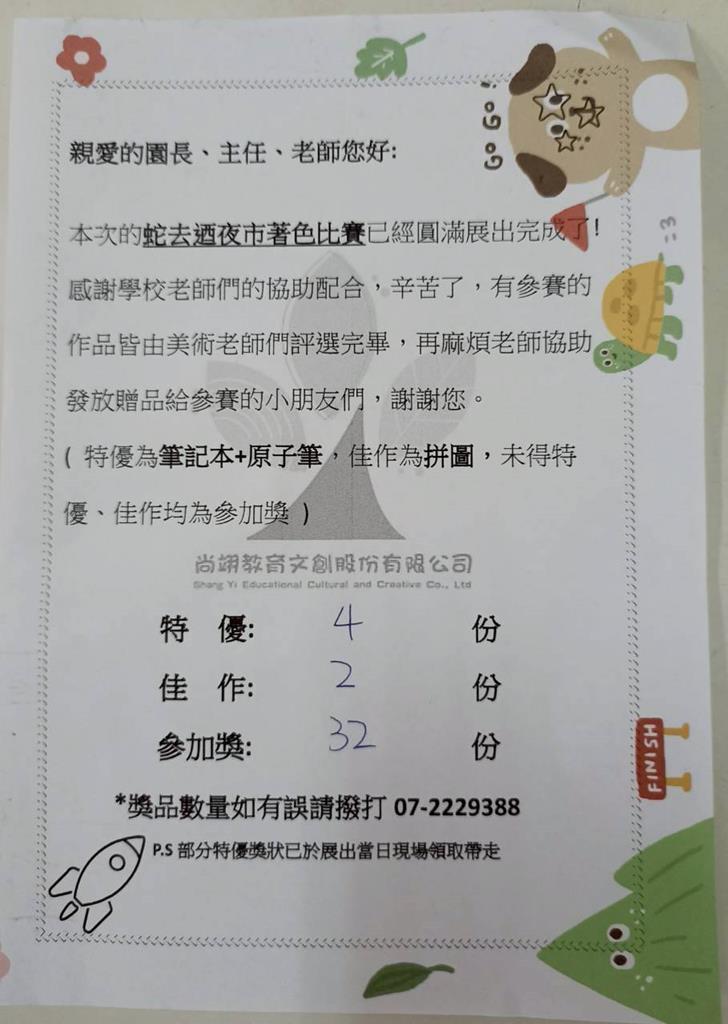 GO GO!
親愛的園長、主任、老師您好:
本次的蛇去迺夜市著色比賽已經圓滿展出完成了!
感謝學校老師們的協助配合，辛苦了，有參賽的
作品皆由美術老師們評選完畢，再麻煩老師協助
發放贈品給參賽的小朋友們，謝謝您。
( 特優為筆記本+原子筆，佳作為拼圖，未得特
優、佳作均為參加獎 )
尚翊教育文創股份有限公司
Shang Yi Educational Cultural and Creative Co., Ltd
特 優: 4 份
佳 作: 2 份
參加獎: 32 份
FINISH
*獎品數量如有誤請撥打 07-2229388
P.S 部分特優獎狀已於展出當日現場領取帶走